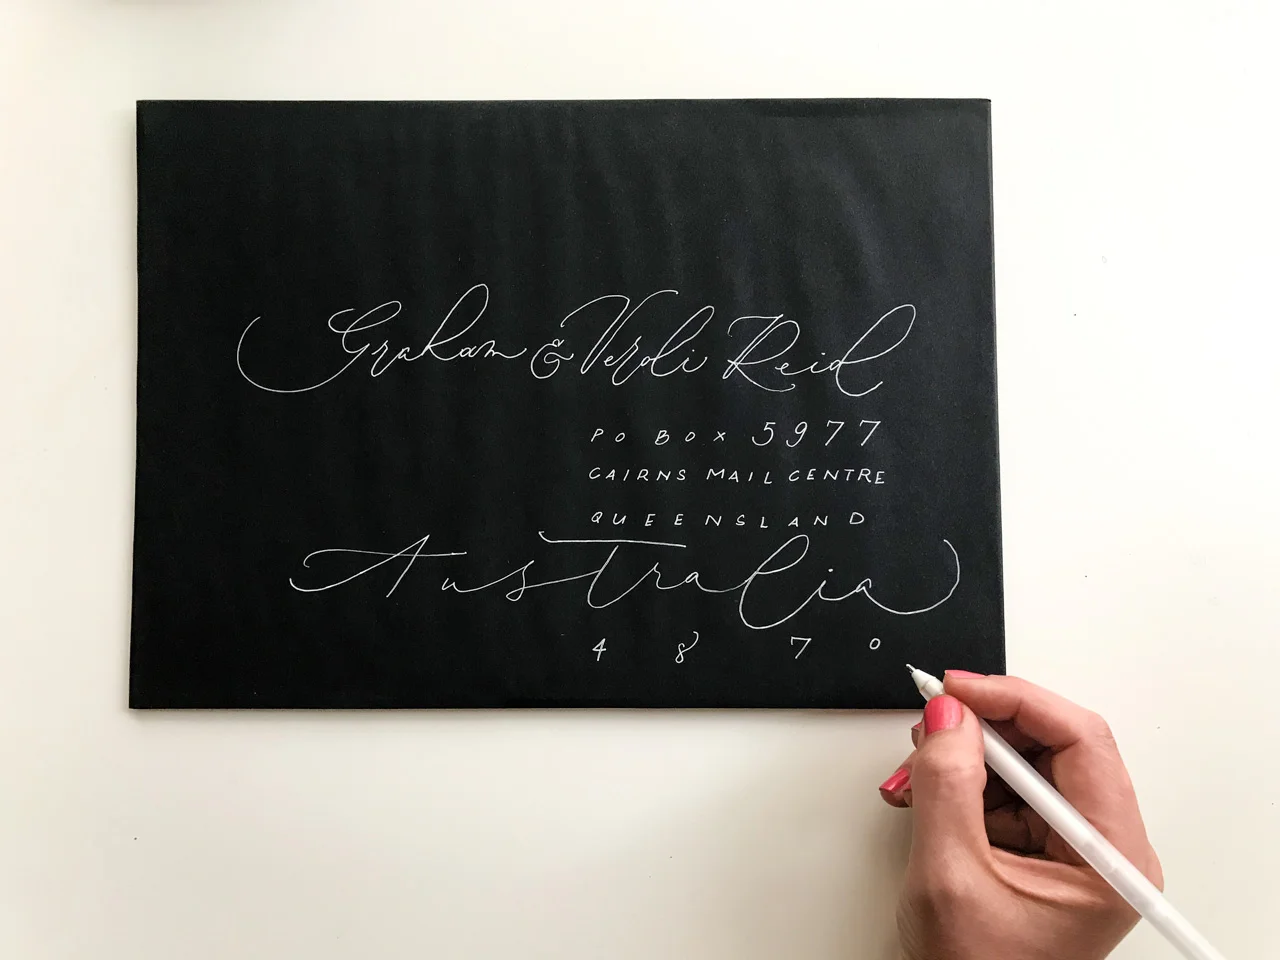 Graham & Verdi Reid
PO BOX 5977
CAIRNS MAIL CENTRE
QUEENSLAND
Australia
4870